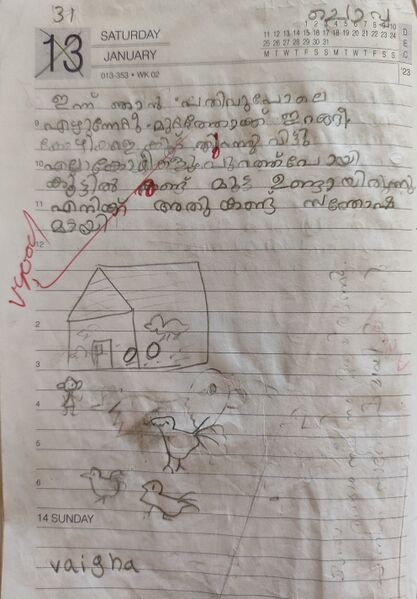 31
ചൊവ്വ
13
SATURDAY
JANUARY
013-353 • WK 02
1 2 3 4 5 6 7 8 9 10
11 12 13 14 15 16 17 18 19 20 21 22 23 24
25 26 27 28 29 30 31
M T W T F S S M T W T F S S
D
E
C
'23
ഇന്ന് ഞാൻ പതിവുപോലെ
9 എഴുന്നേറ്റു മുറ്റത്തേക്ക് ഇറങ്ങി
കോഴിയെ കൂട് തുറന്നു വിട്ടു
10 എല്ലാകോഴികളും പുറത്ത് പോയി
കൂട്ടിൽ രണ്ട് മുട്ട ഉണ്ടായിരുന്നു
11 എനിക്ക് അതു കണ്ടു സന്തോഷ
മായി
12
v good
2
3
4
5
6
14 SUNDAY
vaigha